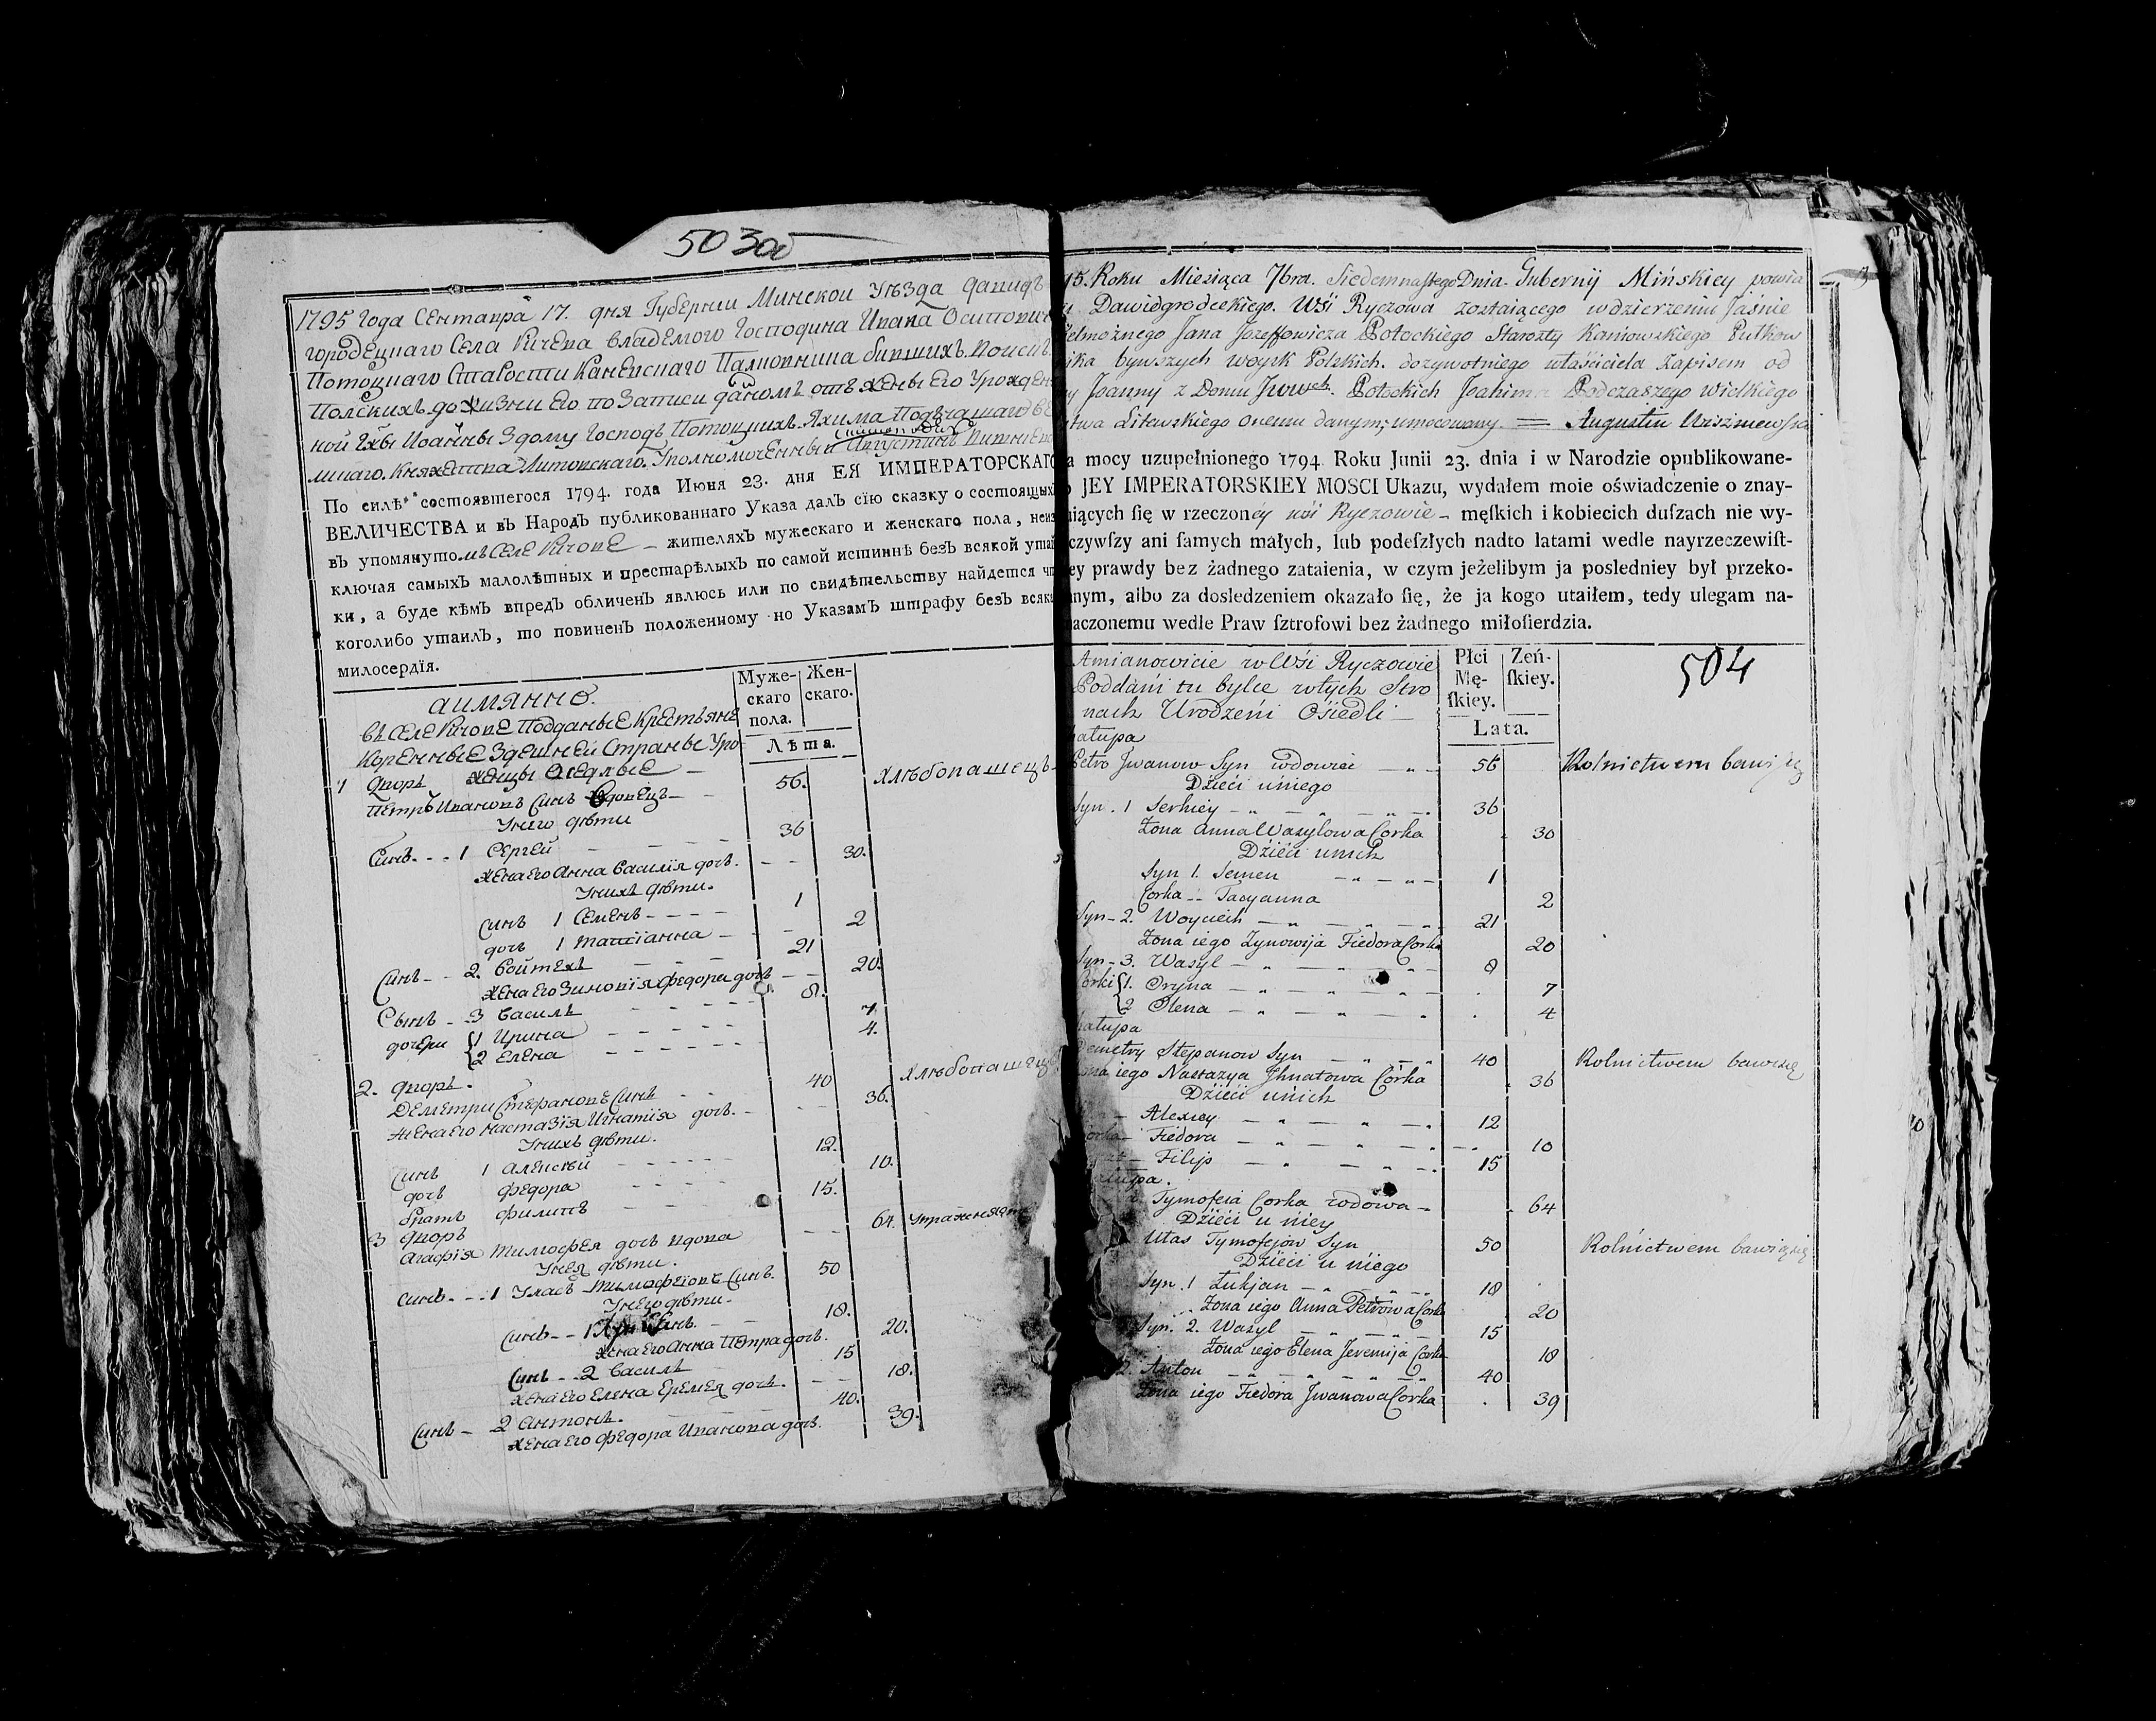 503об
1795 года Сентапра 17. дня Губернии Минской Уезда Давидъ
городецкаго Села Ричева владемого Господина Ивана Осиповича
Потоцкаго Старости Каневскаго Полковника бившихъ Войскъ
Полскихъ до жизни Его по Записи даномъ отъ жены Его Урожден
ной Гжы Иоанны Здому Господъ Потоцкихъ Яхима Подчашаго
Княжества Литовскаго. Уполномоченный Августинъ
По силѣ состоявшегося 1794. года Июня 23. дня ЕЯ ИМПЕРАТОРСКАГО
ВЕЛИЧЕСТВА и въ Народъ публикованнаго Указа далъ сїю сказку о состоящихъ
въ упомянутомъ Селе Ричове – жителяхъ мужескаго и женскаго пола, неиз
ключая самыхъ малолѣтныхъ и престарѣлыхъ по самой истиннѣ безъ всякой утай
ки, а буде кѣмъ впредь обличенъ явлюсь или по свидѣтельству найдется что
коголибо утаилъ, то повиненъ положенному по Указамъ штрафу безъ всяка
милосердїя.
аимянно.
въ Селе Ричове Подданые Крестьяне
Коренные Здешней Страны Уро
женцы Оседлые
Муже-
скаго
пола.
Жен-
скаго.
Лѣта.
1 Дворъ
Петръ Ивановъ Синъ Вдовецъ – 56. хлѣбопашецъ
Унего дѣти
Синъ - - 1 Сергей 36
жена Его Анна Василїя дочь. 30.
Унихъ дѣти.
синъ 1 Семенъ 1
дочь 1 Татїанна 2
Синъ - - 2. Войтехъ 21
жена Его Зиновїя Федора дочь 20.
Сынъ - - 3 Василь 8.
дочери 1 Ирина 7
2 Елена 4.
2. Дворъ.
Деметри Стефановъ Синъ 40 хлѣбопашецъ
жена Его Настазїя Игнатїя дочь. 36.
Унихъ дѣти.
Синъ 1 Алексѣй 12.
дочь Федора 10.
братъ Филипъ 15.
3 Дворъ
Агафїя Тимофея дочь вдова 64.
Унея дѣти.
синъ - - 1 Уласъ Тимофеіовъ Синъ. 50
Унего дѣти.
Синъ - - 1 18.
жена Его Анна Петра дочь. 20.
Синъ - - 2 Василь 15
жена Его Елена Еремея дочь. 18.
Синъ – 2 Антонъ. 40.
жена Его Федора Иванова дочь. 39.
95. Roku Miesiąca 7bra. Siedemnastego Dnia. Gubernij Mińskiey powia
Dawidgrodeckiego. Wśi Ryczowa zostaiącego w dzierzeniu Jaśnie
elmożnego Jana Jozeffowicza Potockiego Starosty Kaniowskiego Pułkow
ika bywszych woysk Polskich. dozywotniego właściciela Zapisem od
y Joanny z Domu Potockich Joahima Podczaszego Wielkiego
stwa Litewskiego onemu danym; umocowany = Augustin
a mocy uzupełnionego 1794. Roku Junii 23. dnia i w Narodzie opublikowane-
o JEY IMPERATORSKIEY MOSCI Ukazu, wydałem moie oświadczenie o znay-
uiących ſię w rzeczoney wśi Ryczowie – męſkich i kobiecich duſzach nie wy-
czywſzy ani ſamych małych, lub podeſzłych nadto latami wedle nayrzeczewiſt-
ey prawdy bez żadnego zataienia, w czym jeżelibym ja posledniey był przeko-
nym, albo za dosledzeniem okazało ſię, że ja kogo utaiłem, tedy ulegam na-
aczonemu wedle Praw ſztrofowi bez żadnego miłoſierdzia.
Amianowicie w Wśi Ryczowie
Poddani tu bylce w tych Stro
nach Urodzeni Osiedli
Płci
Mę-
ſkiey.
Zeń-
ſkiey.
Lata.
504
hatupa
Petro Jwanow Syn wdowiec 56 Rolnictwem bawi się
Dzieci uniego
Syn. 1 Serhiey 36
Zona Anna Wasylowa Corka 30
Dzieci unich
Syn 1. Semen 1
Corka Tacyanna 2
Syn – 2. Woyciech 21
Zona iego Zynowija Fiedora Corka 20
Syn – 3. Wasyl 8
Corki 1. Oryna 7
2 Olena 4
hatupa
Demetry Stepanow Syn 40 Rolnictwem bawi się
Zona iego Nastazya Jhnatowa Córka 36
Dzieci unich
Alexiey 12
Corka Fiedora 10
Filip 15
hatupa.
Tymofeia Corka wdowa – 64
Dzieci u niey
Ułas Tymofejow Syn 50 Rolnictwem bawi się
Dzieci u niego
Syn. 1 Łukjan 18
Zona iego Anna Petrowa Corka 20
Syn. 2. Wasyl 15
Zona iego Elena Jeremija Corka 18
2. Anton 40
Zona iego Fiedora Jwanowa Corka 39